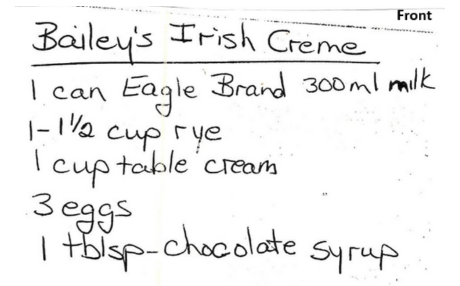 Front
Bailey's Irish Creme
1 can Eagle Brand 300ml milk
1-1 1/2 cup rye
1 cup table cream
3 eggs
1 tblsp-chocolate syrup